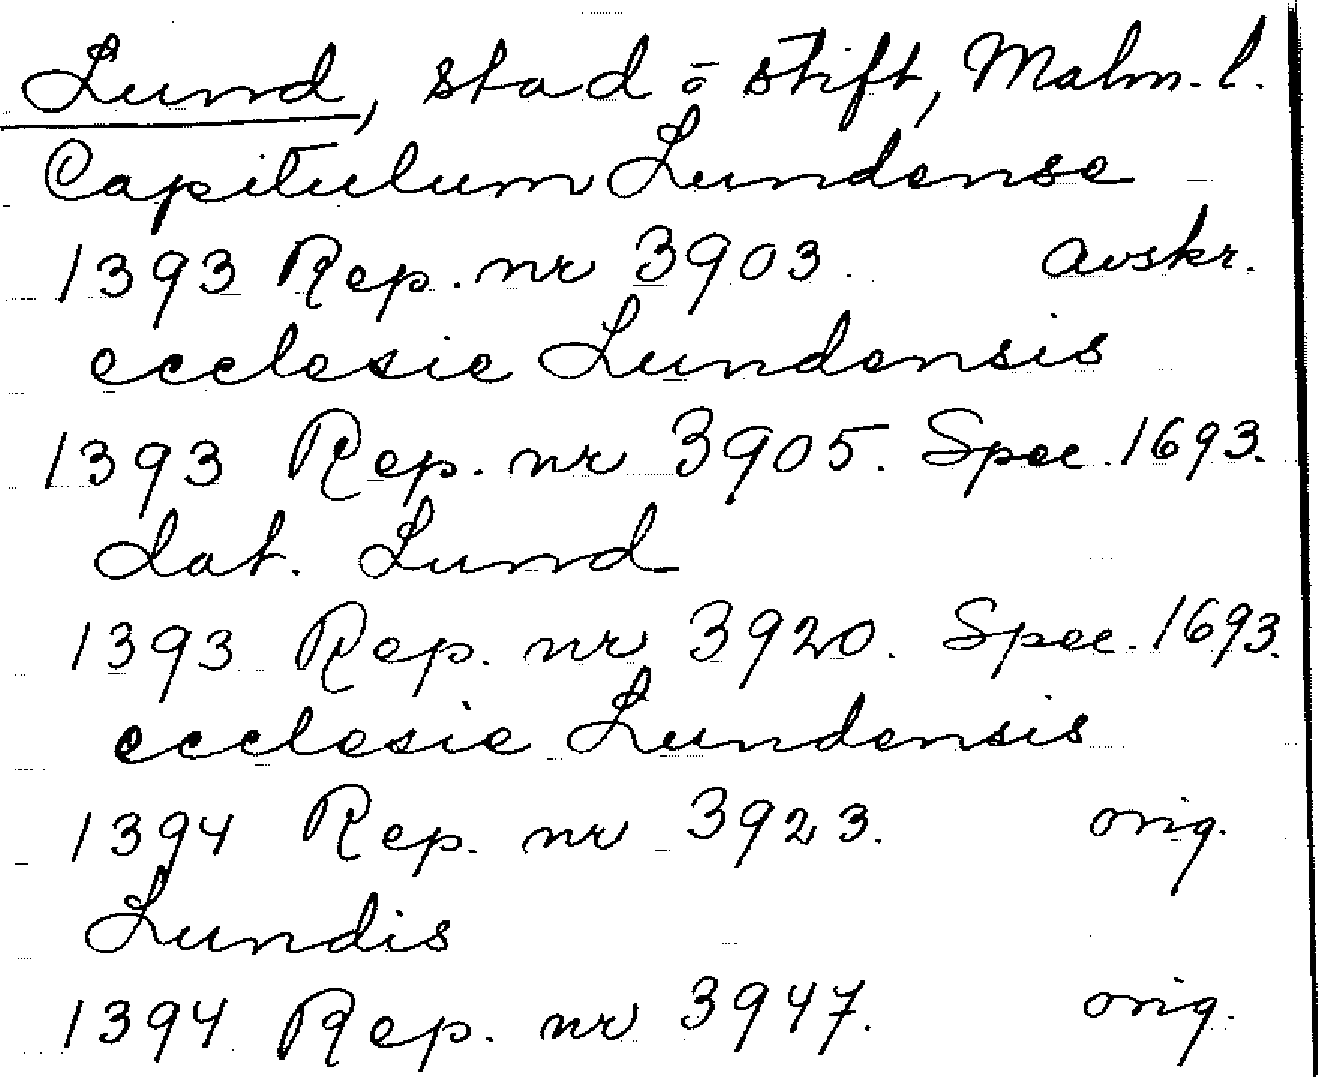 Lund, stad o stift, Malm. l.
Capitulum Lundense
1393 Rep. nr 3903. avskr.
ecclesie Lundensis
1393 Rep. nr 3905. Spec. 1693.
dat. Lund
1393 Rep. nr 3920. Spec. 1693.
ecclesie Lundensis
1394 Rep. nr 3923. orig.
Lundis
1394 Rep. nr 3947. orig.